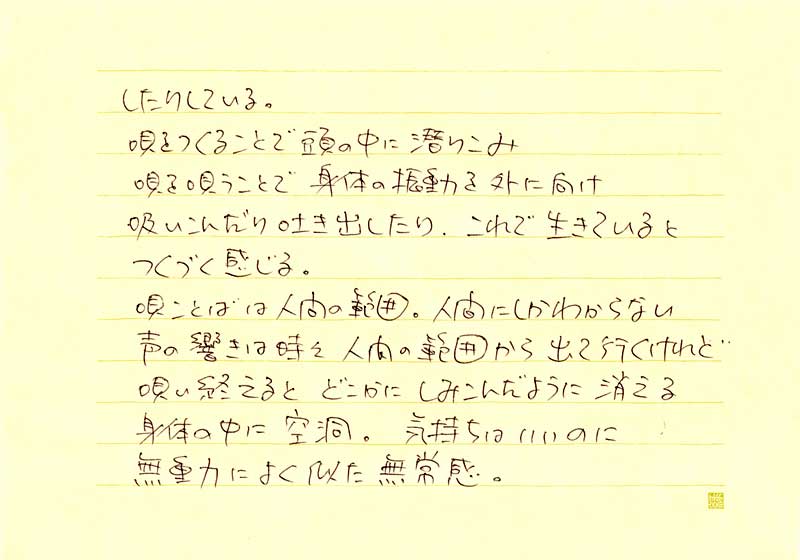 したりしている。
唄をつくることで頭の中に潜りこみ
唄を唄うことで 身体の振動を外に向け
吸いこんだり吐き出したり、これで生きていると
つくづく感じる。
唄ことばは人間の範囲。人間にしかわからない
声の響きは時々人間の範囲から出て行くけれど
唄い終えると どこかに しみこんだように消える
身体の中に空洞。 気持ちはいいのに
無重力によく似た無常感。